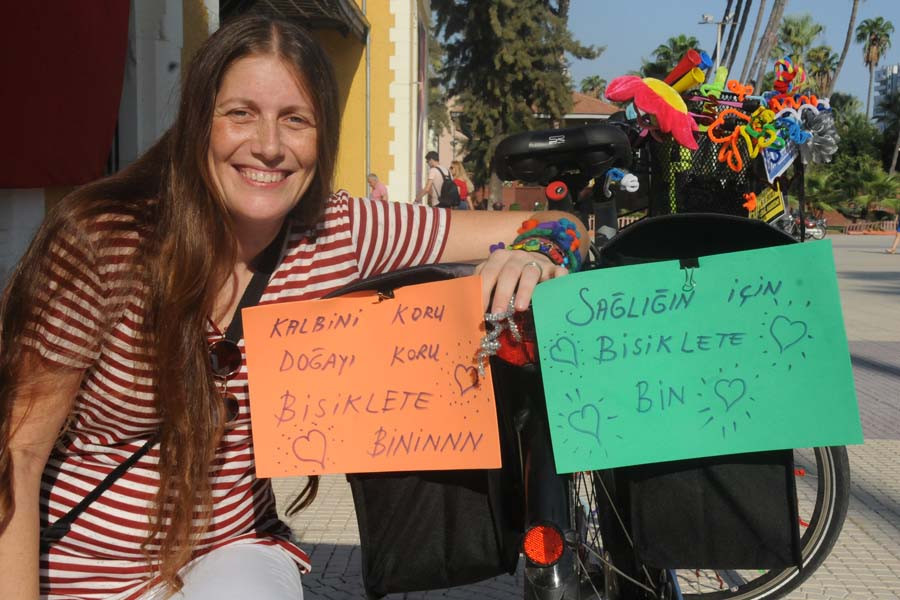 KALBİNİ KORU
DOĞAYI KORU
BİSİKLETE
BİNİNNN
SAĞLIĞIN İÇİN
BİSİKLETE
BİN